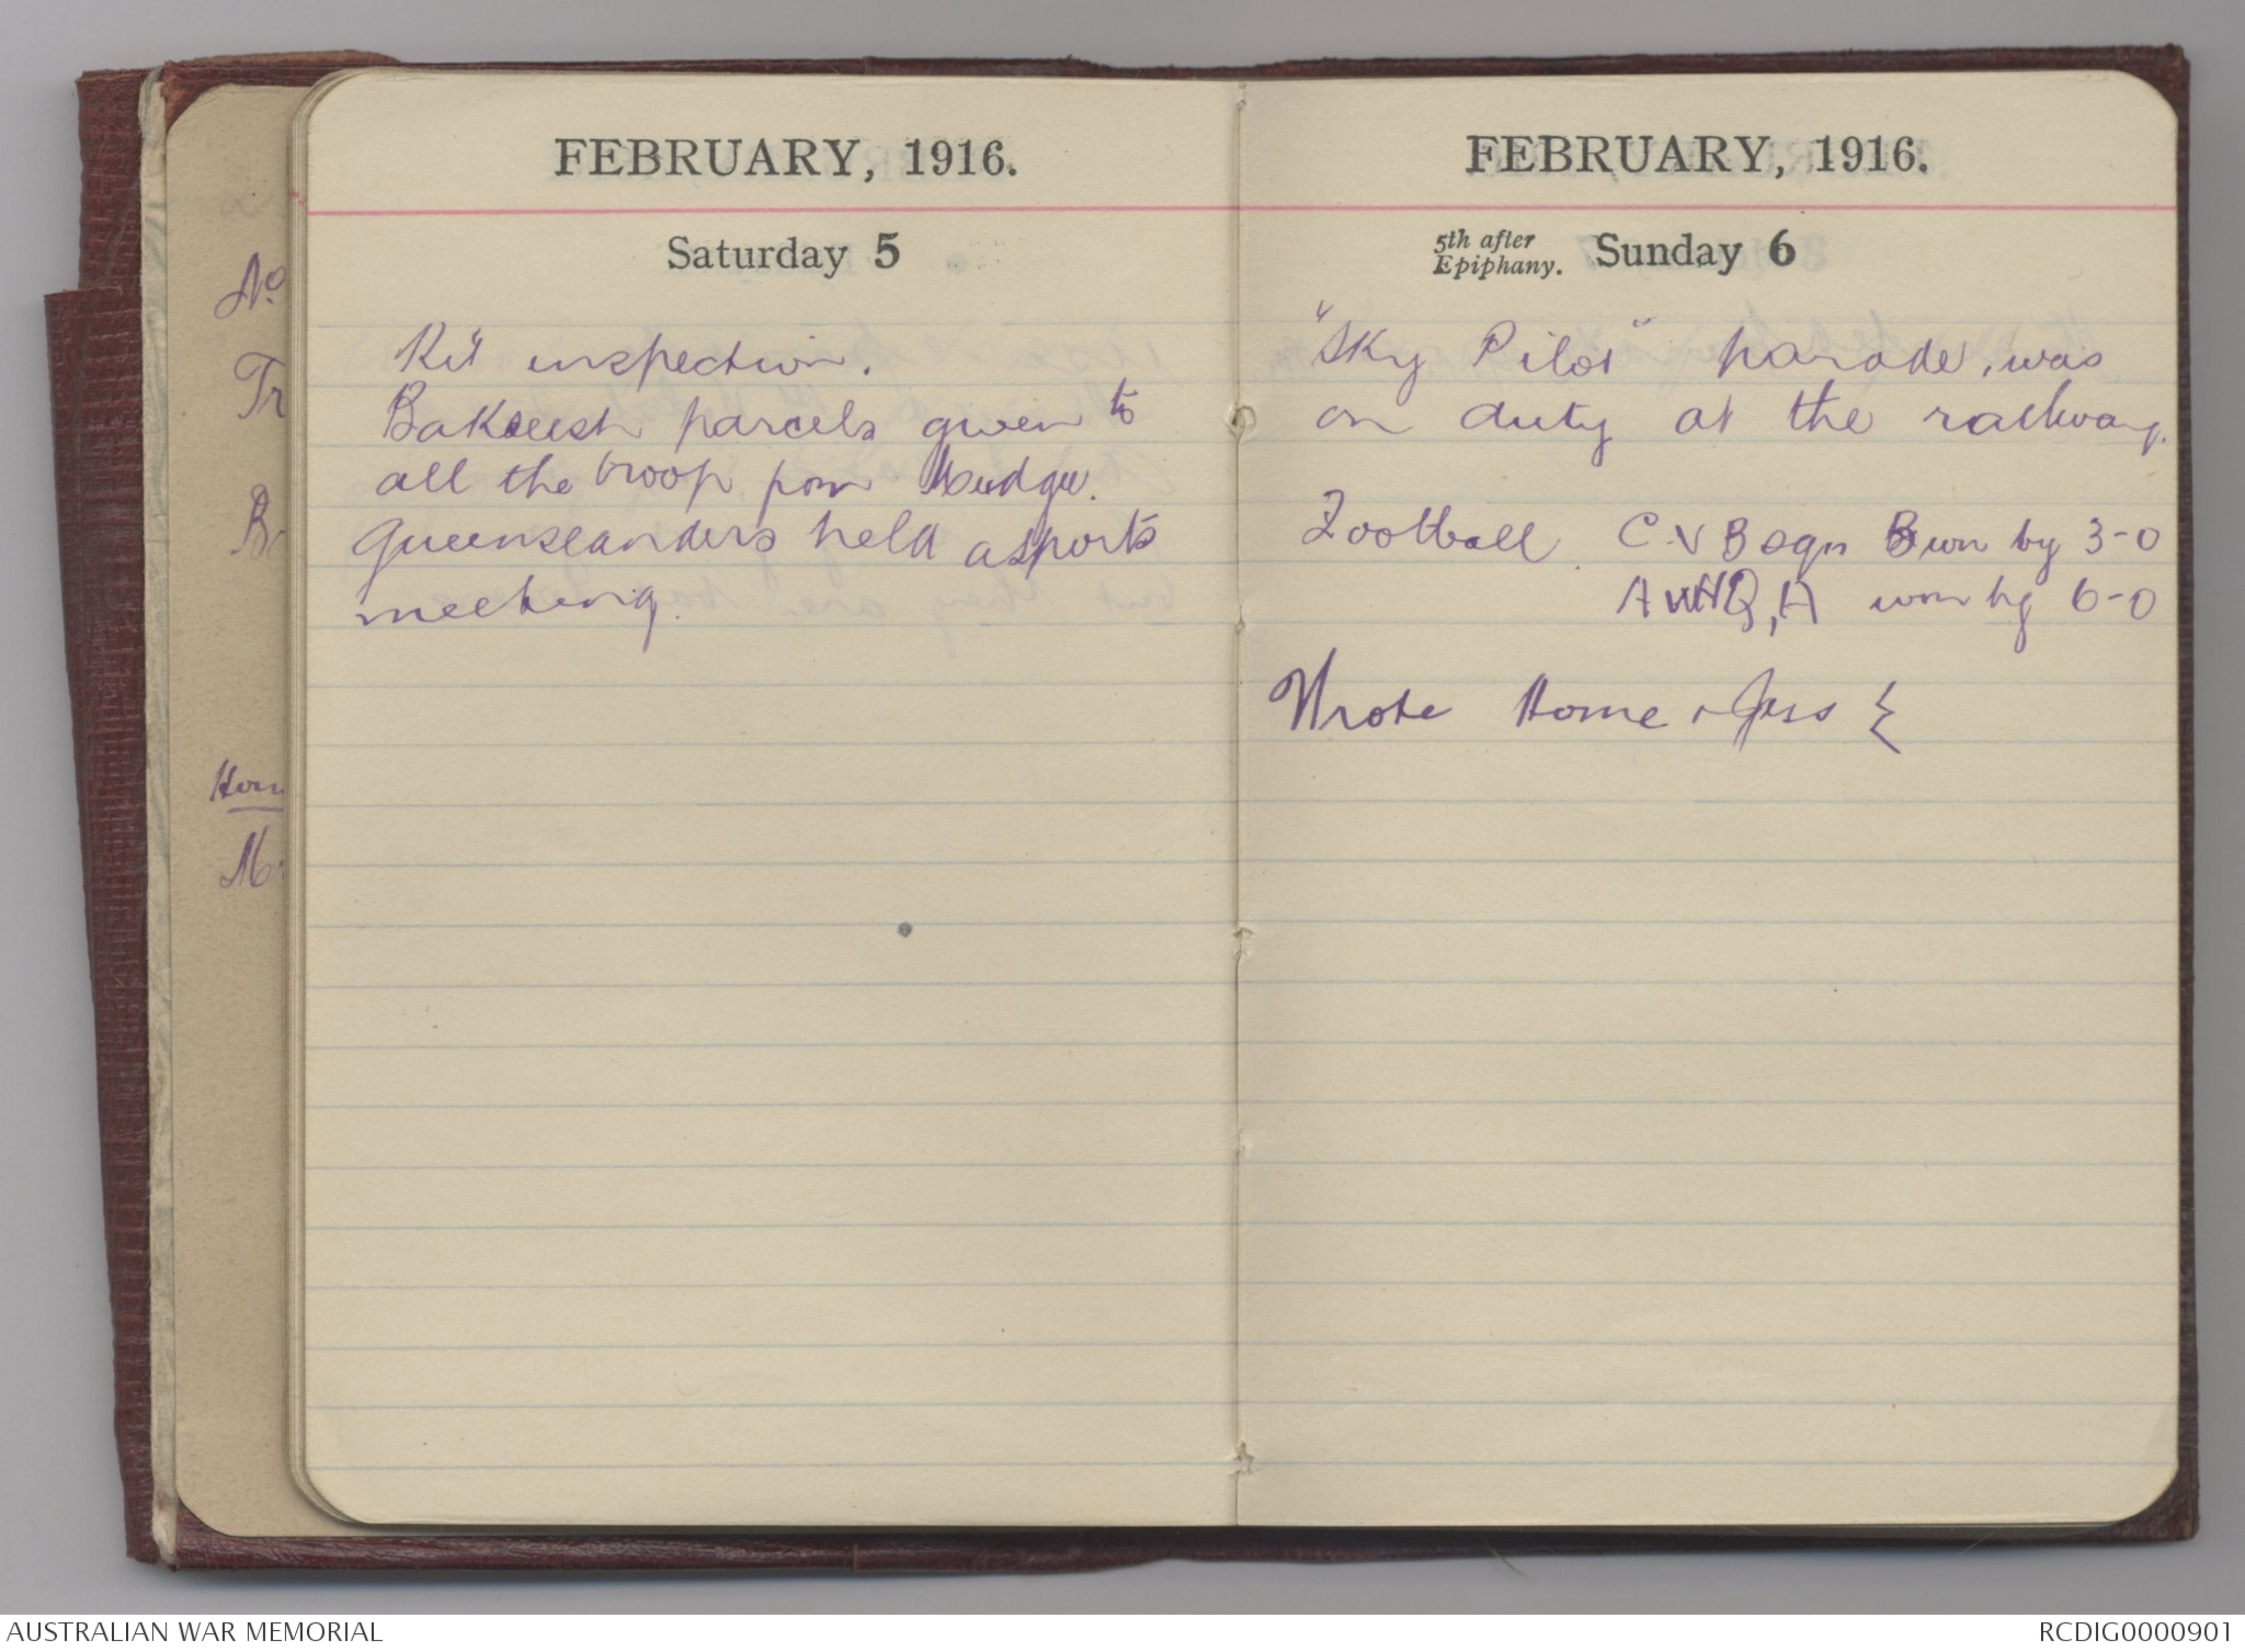 No
Tr
B
Hom
M
FEBRUARY, 1916.
Saturday 5
Kit inspection.
Bakseesh parcels given to
all the troop from Mudgee.
Queenslanders held a sports
meeting.
FEBRUARY, 1916.
5th after
Epiphany. Sunday 6
"Sky Pilot" parade, was
on duty at the railway.
Football. C v B sqn B won by 3-0
A v HQ, A won by 6-0
Wrote Home + Jess {
AUSTRALIAN WAR MEMORIAL
RCDIG0000901